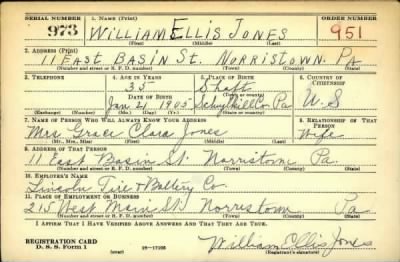 SERIAL NUMBER 1. NAME (Print) ORDER NUMBER
973 WILLIAM ELLIS JONES 951
(First) (Middle) (Last)
2. ADDRESS (Print)
11 EAST BASIN ST. NORRISTOWN. PA
(Number and street or R. F. D. number) (Town) (County) (State)
3. TELEPHONE 4. AGE IN YEARS 5. PLACE OF BIRTH 6. COUNTRY OF CITIZENSHIP
35 Shaft
DATE OF BIRTH
Jan 21 1905 Schuylkill Co. Pa U.S
(Exchange) (Number) (Mo.) (Day) (Yr.) (Town or county) (State or country)
7. NAME OF PERSON WHO WILL ALWAYS KNOW YOUR ADDRESS 8. RELATIONSHIP OF THAT PERSON
Mrs Grace Clara Jones Wife
(Mr., Mrs., Miss) (First) (Middle) (Last)
9. ADDRESS OF THAT PERSON
11 East Basin St. Norristown Pa.
(Number and street or R. F. D. number) (Town) (County) (State)
10. EMPLOYER'S NAME
Lincoln Tire & Battery Co.
11. PLACE OF EMPLOYMENT OR BUSINESS
215 West Main St. Norristown Pa
(Number and street or R. F. D. number) (Town) (County) (State)
I AFFIRM THAT I HAVE VERIFIED ABOVE ANSWERS AND THAT THEY ARE TRUE.
REGISTRATION CARD
D. S. S. Form 1 (over) 16-17105 William Ellis Jones
(Registrant's signature)